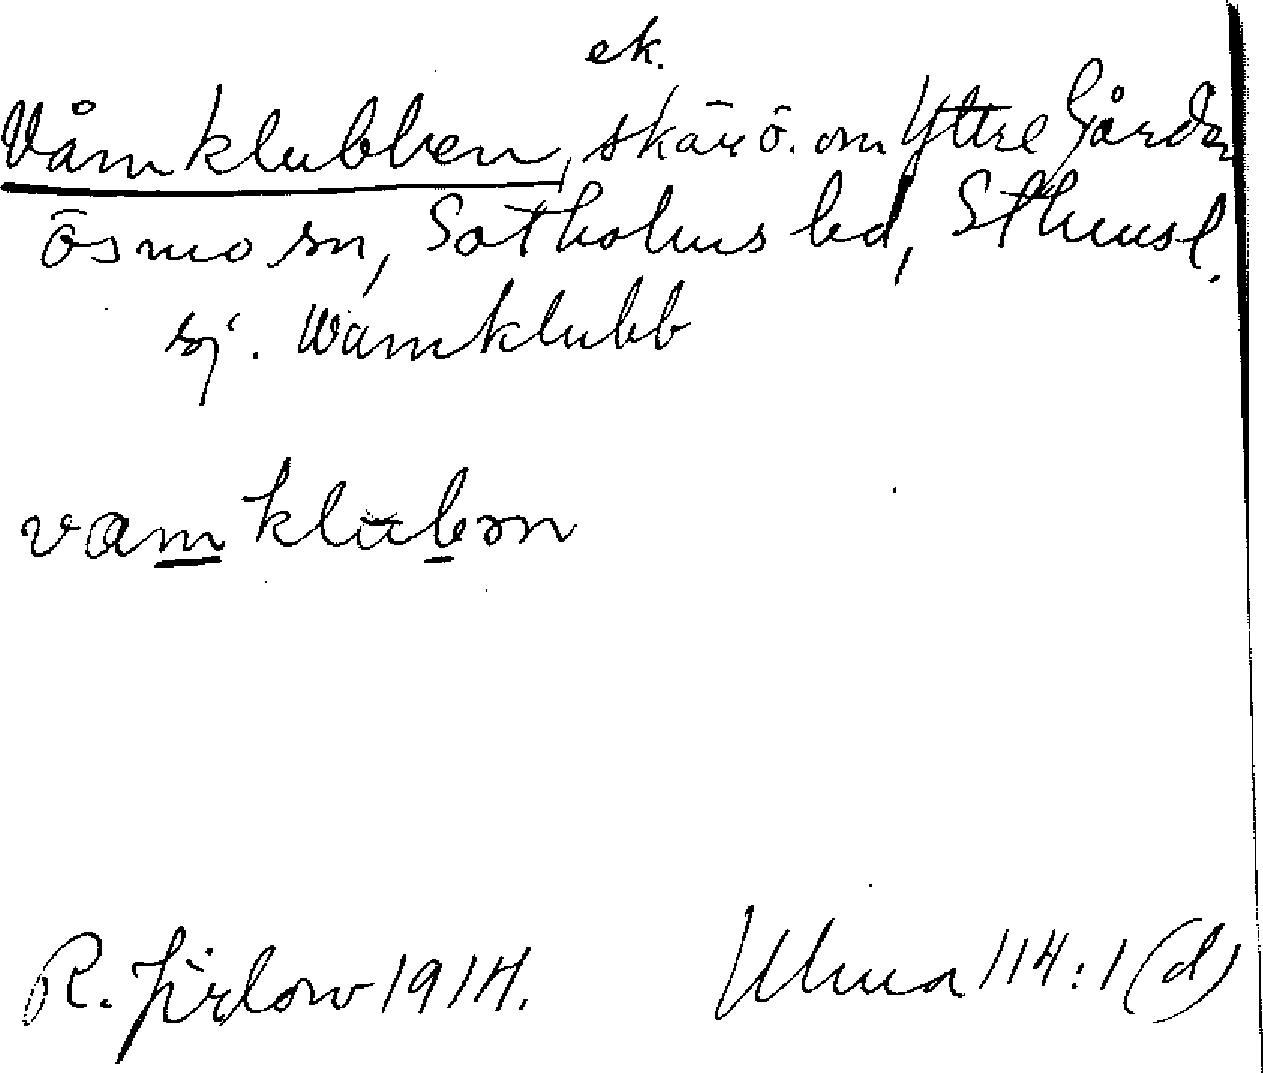 ek.
Våmklubben, skär ö. om Yttre Gården
Ösmo sn, Sotholms hd, Sthmsl.
sj. Wämklubb
vamklubən
R. Jirlow 1914.
Ulma 114:1 (d)